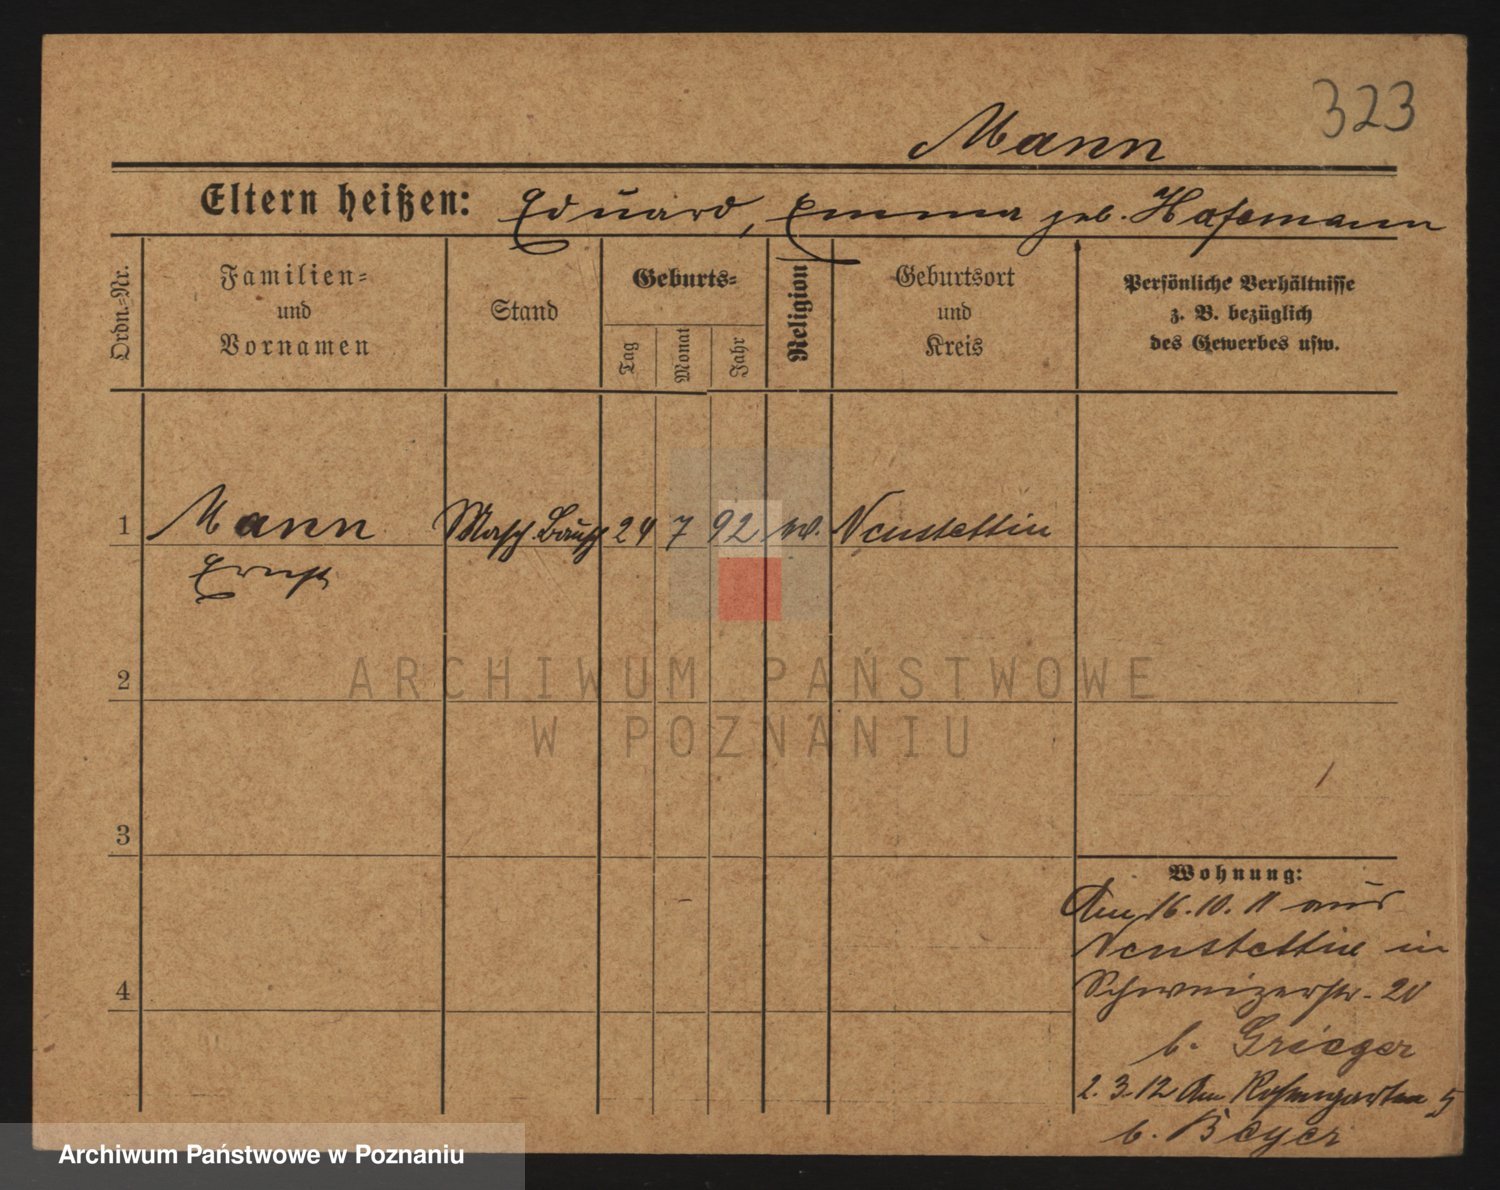 323
Mann
Eltern heißen: Eduard, Emma geb. Hasemann
Ordn.=Nr.
Familien=
und
Vornamen
Stand
Geburts=
Tag
Monat
Jahr
Religion
Geburtsort
und
Kreis
Persönliche Verhältnisse
z. B. bezüglich
des Gewerbes usw.
1 Mann Masch. 24 7 92 Neustettin
Ernst
2
3
4
Wohnung:
Am 16.10.11 aus
Neustettin in
Schweizerstr. 20
b. Grieger
2.3.12 Am Rosengarten 5
b. Beyer
ARCHIWUM PAŃSTWOWE
W POZNANIU
Archiwum Państwowe w Poznaniu